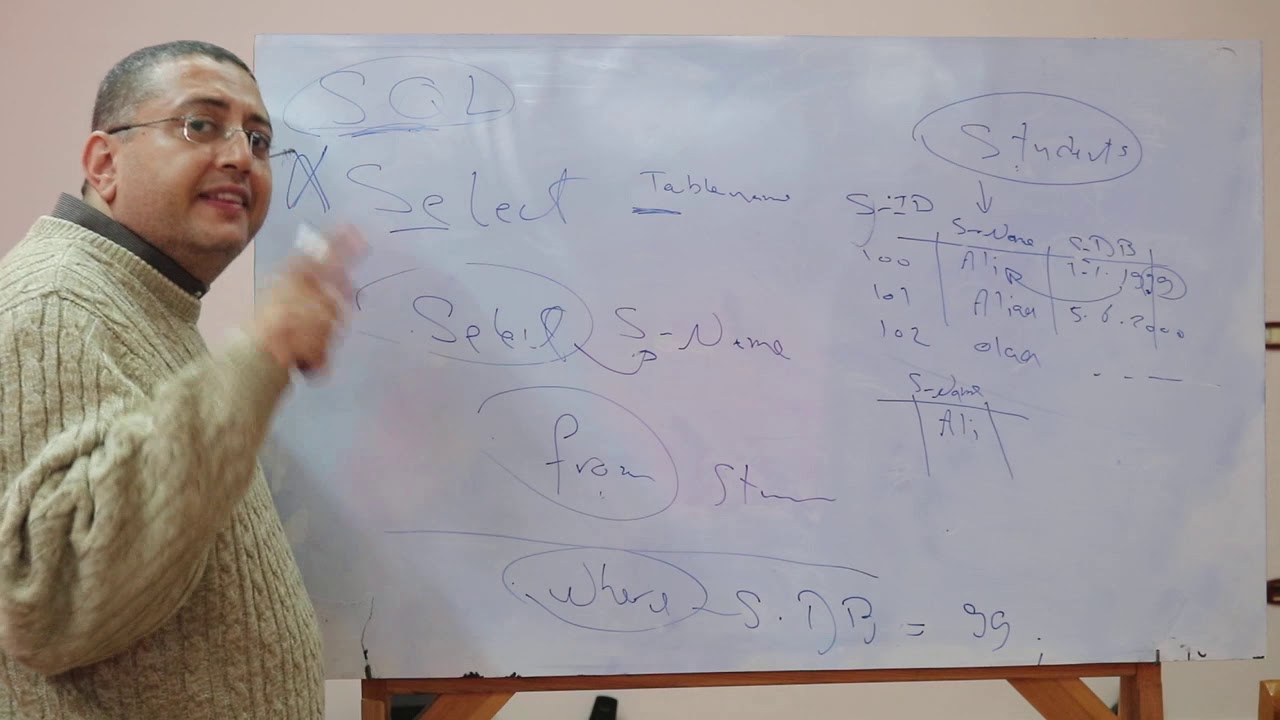 SQL
Select Tablename
Select S-Name
from Stu
where S.DB = 99.
Students
S-ID S-Name S.DB
100 Ali 1.1.1999
101 Aliaa 5.6.2000
102 olaa - - -
S-Name
Ali